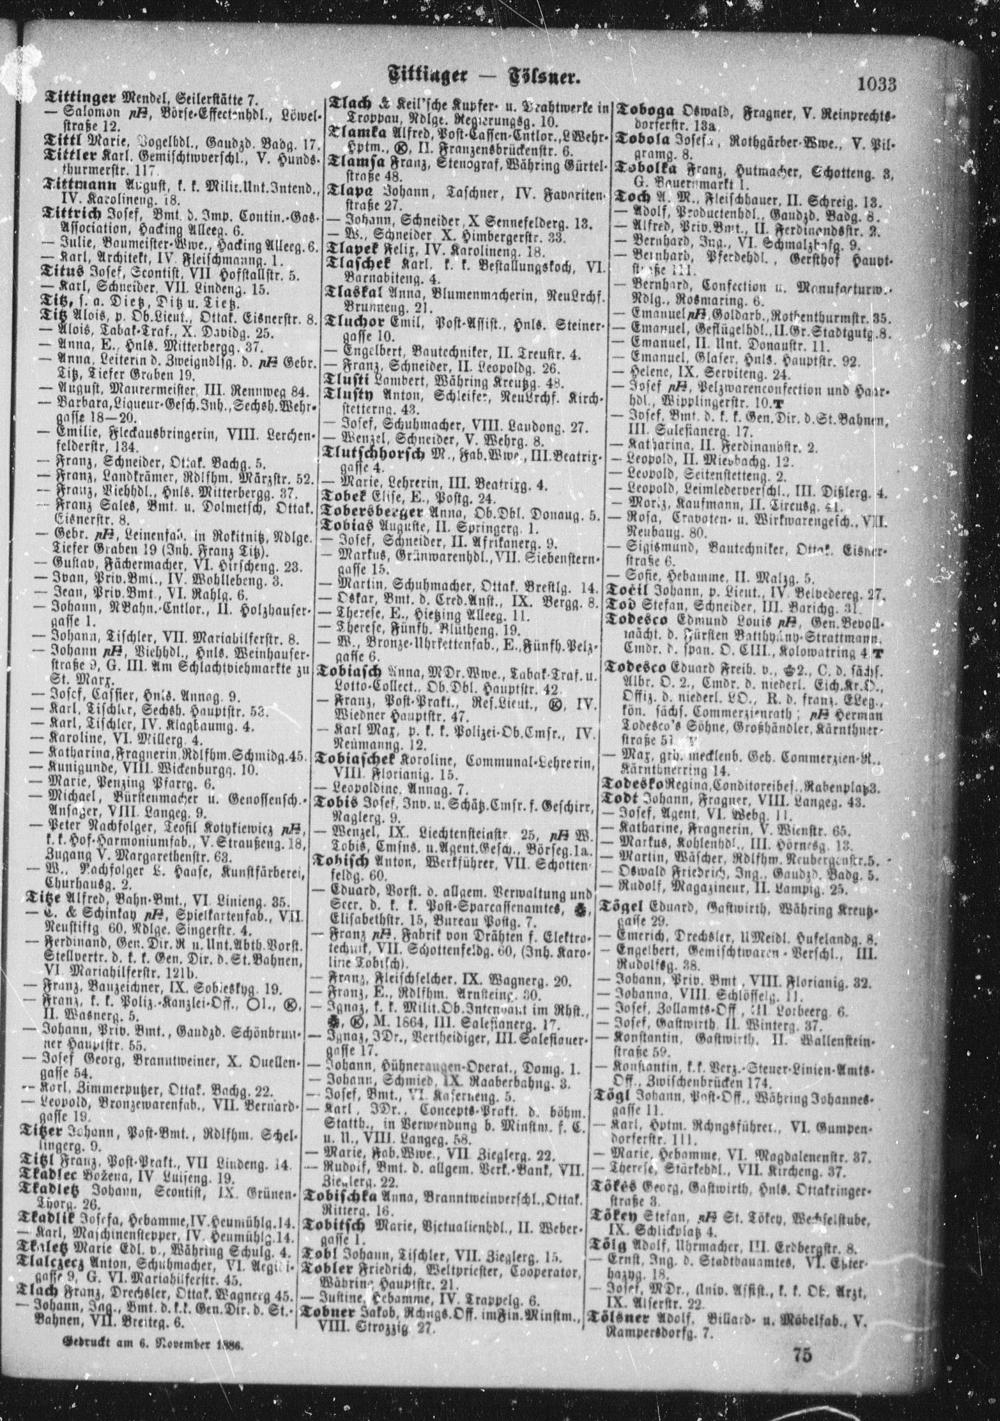 Tittinger — Tölsner.
1033
Tittinger Mendel, Seilerstätte 7.
— Salomon, Börse-Effectenhdl., Löwel-
straße 12.
Tittl Marie, Vogelbhdl., Gaudzd. Badg. 17.
Tittler Karl, Gemischtwverschl., V. Hunds-
thurmerstr. 117.
Tittmann August, k. k. Milit.Unt.Intend.,
IV. Karolineng. 18.
Tittrich Josef, Bmt. d. Imp. Contin.-Gas-
Association, Hacking Alleeg. 6.
— Julie, Baumeister-Wwe., Hacking Alleeg. 6.
— Karl, Architekt, IV. Fleischmanng. 1.
Titus Josef, Scontist, VII. Hofstallstr. 5.
— Karl, Schneider, VII. Lindeng. 15.
Titz, s. a. Dietz, Ditz u. Tietz.
Titz Alois, p. Ob.Lieut., Ottak. Eisnerstr. 8.
— Alois, Tabak-Traf., X. Davidg. 25.
— Anna, E., Hnls. Mitterbergg. 37.
— Anna, Leiterin d. Zweigndlsg. d. Gebr.
Titz, Tiefer Graben 19.
— August, Maurermeister, III. Rennweg 84.
— Barbara, Liqueur-Gesch.Inh., Sechsh. Wehr-
gasse 18—20.
— Emilie, Fleckausbringerin, VIII. Lerchen-
felderstr. 134.
— Franz, Schneider, Ottak. Bachg. 5.
— Franz, Landkrämer, Rdlfhm. Märzstr. 52.
— Franz, Viehhdl., Hnls. Mitterbergg. 37.
— Franz Sales, Bmt. u. Dolmetsch, Ottak.
Eisnerstr. 8.
— Gebr., Leinenfab. in Rokitnitz, Ndlge.
Tiefer Graben 19 (Inh. Franz Titz).
— Gustav, Fächermacher, VI. Hirscheng. 23.
— Ivan, Priv.Bmt., IV. Wohllebeng. 3.
— Jean, Priv.Bmt., VI. Rahlg. 6.
— Johann, NBahn-Cntlor., II. Holzhauser-
gasse 1.
— Johann, Tischler, VII. Mariahilferstr. 8.
— Johann, Viehhdl., Hnls. Weinhauser-
straße 9, G. III. Am Schlachtviehmarkte zu
St. Marx.
— Josef, Cassier, Hnls. Annag. 9.
— Karl, Tischler, Sechsh. Hauptstr. 53.
— Karl, Tischler, IV. Klagbaumg. 4.
— Karoline, VI. Millerg. 4.
— Katharina, Fragnerin, Rdlfhm. Schmidg. 45.
— Kunigunde, VIII. Wickenburgg. 10.
— Marie, Penzing Pfarrg. 6.
— Michael, Bürstenmacher u. Genossensch.-
Ansager, VIII. Langeg. 9.
— Peter Nachfolger, Teofil Kotykiewicz,
k. k. Hof-Harmoniumfab., V. Straußeng. 18,
Zugang V. Margarethenstr. 63.
— W., Nachfolger L. Haase, Kunstfärberei,
Churhausg. 2.
Titze Alfred, Bahn-Bmt., VI. Linieng. 35.
— & Schinkay, Spielkartenfab., VII.
Neustiftg. 60, Ndlge. Singerstr. 4.
— Ferdinand, Gen.Dir.R. u. Unt.Abth.Vorst.
Stellvertr. d. k. k. Gen. Dir. d. St.Bahnen,
VI. Mariahilferstr. 121b.
— Franz, Bauzeichner, IX. Sobieskyg. 19.
— Franz, k. k. Poliz.-Kanzlei-Off., II. Wasnerg. 5.
— Johann, Priv. Bmt., Gaudzd. Schönbrun-
ner Hauptstr. 55.
— Josef Georg, Branntweiner, X. Quellen-
gasse 54.
— Karl, Zimmerputzer, Ottak. Bachg. 22.
— Leopold, Bronzewarenfab., VII. Bernard-
gasse 19.
Titzer Johann, Post-Bmt., Rdlfhm. Schel-
lingerg. 9.
Titzl Franz, Post-Prakt., VII. Lindeng. 14.
Tkadlec Božena, IV. Luiseng. 19.
Tkadletz Johann, Scontist, IX. Grünen-
Thorg. 26.
Tkadlik Josefa, Hebamme, IV. Heumühlg. 14.
— Karl, Maschinenstepper, IV. Heumühlg. 14.
Tkaletz Marie Edl. v., Währing Schulg. 4.
Tlalczecz Anton, Schuhmacher, VI. Aegidi-
gasse 9, G. VI. Mariahilferstr. 45.
Tlach Franz, Drechsler, Ottak. Wagnerg. 45.
— Johann, Ing., Bmt. d. k.k. Gen.Dir. d. St.-
Bahnen, VII. Breiteg. 6.
Gedruckt am 6. November 1886.
Tlach & Keil'sche Kupfer- u. Drahtwerke in
Troppau, Ndlge. Regierungsg. 10.
Tlamka Alfred, Post-Cassen-Cntlor., LWehr-
Hptm., II. Franzensbrückenstr. 6.
Tlamsa Franz, Stenograf, Währing Gürtel-
straße 48.
Tlapa Johann, Taschner, IV. Favoriten-
straße 27.
— Johann, Schneider, X. Sennefelderg. 13.
— W., Schneider, X. Himbergerstr. 33.
Tlapek Felix, IV. Karolineng. 18.
Tlaschek Karl, k. k. Bestallungskoch, VI.
Barnabiteng. 4.
Tlaskal Anna, Blumenmacherin, NeuLrchf.
Brunneng. 21.
Tluchor Emil, Post-Assist., Hnls. Steiner-
gasse 10.
— Engelbert, Bautechniker, II. Treustr. 4.
— Franz, Schneider, II. Leopoldg. 26.
Tlusti Lambert, Währing Kreutzg. 48.
Tlusty Anton, Schleifer, NeuLrchf. Kirch-
stetterng. 43.
— Josef, Schuhmacher, VIII. Laudong. 27.
— Wenzel, Schneider, V. Wehrg. 8.
Tlutschhorsch M., Fab.Wwe., III. Beatrix-
gasse 4.
— Marie, Lehrerin, III. Beatrixg. 4.
Tobek Elise, E., Postg. 24.
Tobersberger Anna, Ob.Dbl. Donaug. 5.
Tobias Auguste, II. Springerg. 1.
— Josef, Schneider, II. Afrikanerg. 9.
— Markus, Grünwarenhdl., VII. Siebenstern-
gasse 15.
— Martin, Schuhmacher, Ottak. Brestlg. 14.
— Oskar, Bmt. d. Cred.Anst., IX. Bergg. 8.
— Therese, E., Hietzing Alleeg. 11.
— Therese, Fünfh. Blütheng. 19.
— W., Bronze-Uhrkettenfab., E., Fünfh. Pelz-
gasse 6.
Tobiasch Anna, MDr.Wwe., Tabak-Traf. u.
Lotto-Collect., Ob.Dbl. Hauptstr. 42.
— Franz, Post-Prakt., Res.Lieut., IV.
Wiedner Hauptstr. 47.
— Karl Max, p. k. k. Polizei-Ob.Cmsr., IV.
Neumanng. 12.
Tobiaschek Karoline, Communal-Lehrerin,
VIII. Florianig. 15.
— Leopoldine, Annag. 7.
Tobis Josef, Inv. u. Schätz.Cmsr. f. Geschirr,
Naglerg. 9.
— Wenzel, IX. Liechtensteinstr. 25, W.
Tobis, Cmsns. u. Agent.Gesch., Börseg. 1a.
Tobisch Anton, Werkführer, VII. Schotten-
feldg. 60.
— Eduard, Vorst. d. allgem. Verwaltung und
Secr. d. k. k. Post-Sparcassenamtes,
Elisabethstr. 15, Bureau Postg. 7.
— Franz, Fabrik von Drähten f. Elektro-
technik, VII. Schottenfeldg. 60, (Inh. Karo-
line Tobisch).
— Franz, Fleischselcher, IX. Wagnerg. 20.
— Franz, E., Rdlfhm. Arnsteing. 30.
— Ignaz, k. k. Milit.Ob.Intendant im Rhst.,
M. 1864, III. Salesianerg. 17.
— Ignaz, JDr., Vertheidiger, III. Salesianer-
gasse 17.
— Johann, Hühneraugen-Operat., Domg. 1.
— Johann, Schmied, IX. Raaberbahng. 3.
— Josef, Bmt., VI. Kaserneng. 5.
— Karl, JDr., Concepts-Prakt. d. böhm.
Statth., in Verwendung b. Minstm. f. C.
u. U., VIII. Langeg. 58.
— Marie, Fab.Wwe., VII. Zieglerg. 22.
— Rudolf, Bmt. d. allgem. Verk.-Bank, VII.
Zieglerg. 22.
Tobischka Anna, Branntweinverschl., Ottak.
Ritterg. 16.
Tobitsch Marie, Victualienhdl., II. Weber-
gasse 1.
Tobl Johann, Tischler, VII. Zieglerg. 15.
Tobler Friedrich, Weltpriester, Cooperator,
Währing Hauptstr. 21.
— Justine, Hebamme, IV. Trappelg. 6.
Tobner Jakob, Rchngs.Off. im Fin.Minstm.,
VIII. Strozzig. 27.
Toboga Oswald, Fragner, V. Reinprechts-
dorferstr. 13a.
Tobola Josefa, Rothgärber-Wwe., V. Pil-
gramg. 8.
Tobolka Franz, Hutmacher, Schotteng. 3,
G. Bauernmarkt 1.
Toch A. M., Fleischhauer, II. Schreig. 13.
— Adolf, Productenhdl., Gaudzd. Badg. 8.
— Alfred, Priv.Bmt., II. Ferdinandsstr. 2.
— Bernhard, Ing., VI. Schmalzhofg. 9.
— Bernhard, Pferdehdl., Gersthof Haupt-
straße 111.
— Bernhard, Confection u. Manufacturw.-
Ndlg., Rosmaring. 6.
— Emanuel, Goldarb., Rothenthurmstr. 35.
— Emanuel, Geflügelhdl., II. Gr.Stadtgutg. 8.
— Emanuel, II. Unt. Donaustr. 11.
— Emanuel, Glaser, Hnls. Hauptstr. 92.
— Helene, IX. Serviteng. 24.
— Josef, Pelzwarenconfection und Haar-
hdl., Wipplingerstr. 10. T
— Josef, Bmt. d. k. k. Gen.Dir. d.St.Bahnen,
III. Salesianerg. 17.
— Katharina, II. Ferdinandstr. 2.
— Leopold, II. Miesbachg. 12.
— Leopold, Seitenstetteng. 2.
— Leopold, Leimlederverschl., III. Dißlerg. 4.
— Moriz, Kaufmann, II. Circusg. 41.
— Rosa, Cravaten- u. Wirkwarengesch., VII.
Neubaug. 80.
— Sigismund, Bautechniker, Ottak. Eisner-
straße 6.
— Sofie, Hebamme, II. Malzg. 5.
Točil Johann, p. Lieut., IV. Belvedereg. 27.
Tod Stefan, Schneider, III. Barichg. 31.
Todesco Edmund Louis, Gen.Bevoll-
mächt. d. Fürsten Batthyány-Strattmann,
Cmdr. d. span. O. CIII., Kolowatring 4. T
Todesco Eduard Freih. v., 2., C. d. sächs.
Albr. O. 2., Cmdr. d. niederl. Eich.Kr.O.,
Offiz. d. niederl. LO., R. d. franz. ELeg.,
kön. sächs. Commerzienrath; Herman
Todesco's Söhne, Großhändler, Kärnthner-
straße 51. T
— Max, grh. mecklenb. Geh. Commerzien-R.,
Kärnthnerring 14.
Todesko Regina, Conditoreibes., Rabenplatz 3.
Todt Johann, Fragner, VIII. Langeg. 43.
— Josef, Agent, VI. Webg. 11.
— Katharine, Fragnerin, V. Wienstr. 65.
— Markus, Kohlenhdl., III. Hörnesg. 13.
— Martin, Wäscher, Rdlfhm. Neubergenstr. 5.
— Oswald Friedrich, Ing., Gaudzd. Badg. 5.
— Rudolf, Magazineur, II. Lampig. 25.
Tögel Eduard, Gastwirth, Währing Kreutz-
gasse 29.
— Emerich, Drechsler, UMeidl. Hufelandg. 8.
— Engelbert, Gemischtwaren-Verschl., III.
Rudolfsg. 38.
— Johann, Priv. Bmt., VIII. Florianig. 32.
— Johanna, VIII. Schlösselg. 11.
— Josef, Zollamts-Off., III. Lorbeerg. 6.
— Josef, Gastwirth, II. Winterg. 37.
— Konstantin, Gastwirth, II. Wallenstein-
straße 59.
— Konstantin, k.k. Verz.-Steuer-Linien-Amts-
Off., Zwischenbrücken 174.
Tögl Johann, Post-Off., Währing Johannes-
gasse 11.
— Karl, Hptm. Rchngsführer., VI. Gumpen-
dorferstr. 111.
— Marie, Hebamme, VI. Magdalenenstr. 37.
— Therese, Stärkehdl., VII. Kircheng. 37.
Tökés Georg, Gastwirth, Hnls. Ottakringer-
straße 3.
Tökey Stefan, St. Tökey, Wechselstube,
IX. Schlickplatz 4.
Tölg Adolf, Uhrmacher, III. Erdbergstr. 8.
— Ernst, Ing. d. Stadtbauamtes, VI. Ester-
hazyg. 18.
— Josef, MDr., Univ. Assist., k. k. Ob. Arzt,
IX. Alserstr. 22.
Tölsner Adolf, Billard- u. Möbelfab., V.
Rampersdorfg. 7.
75